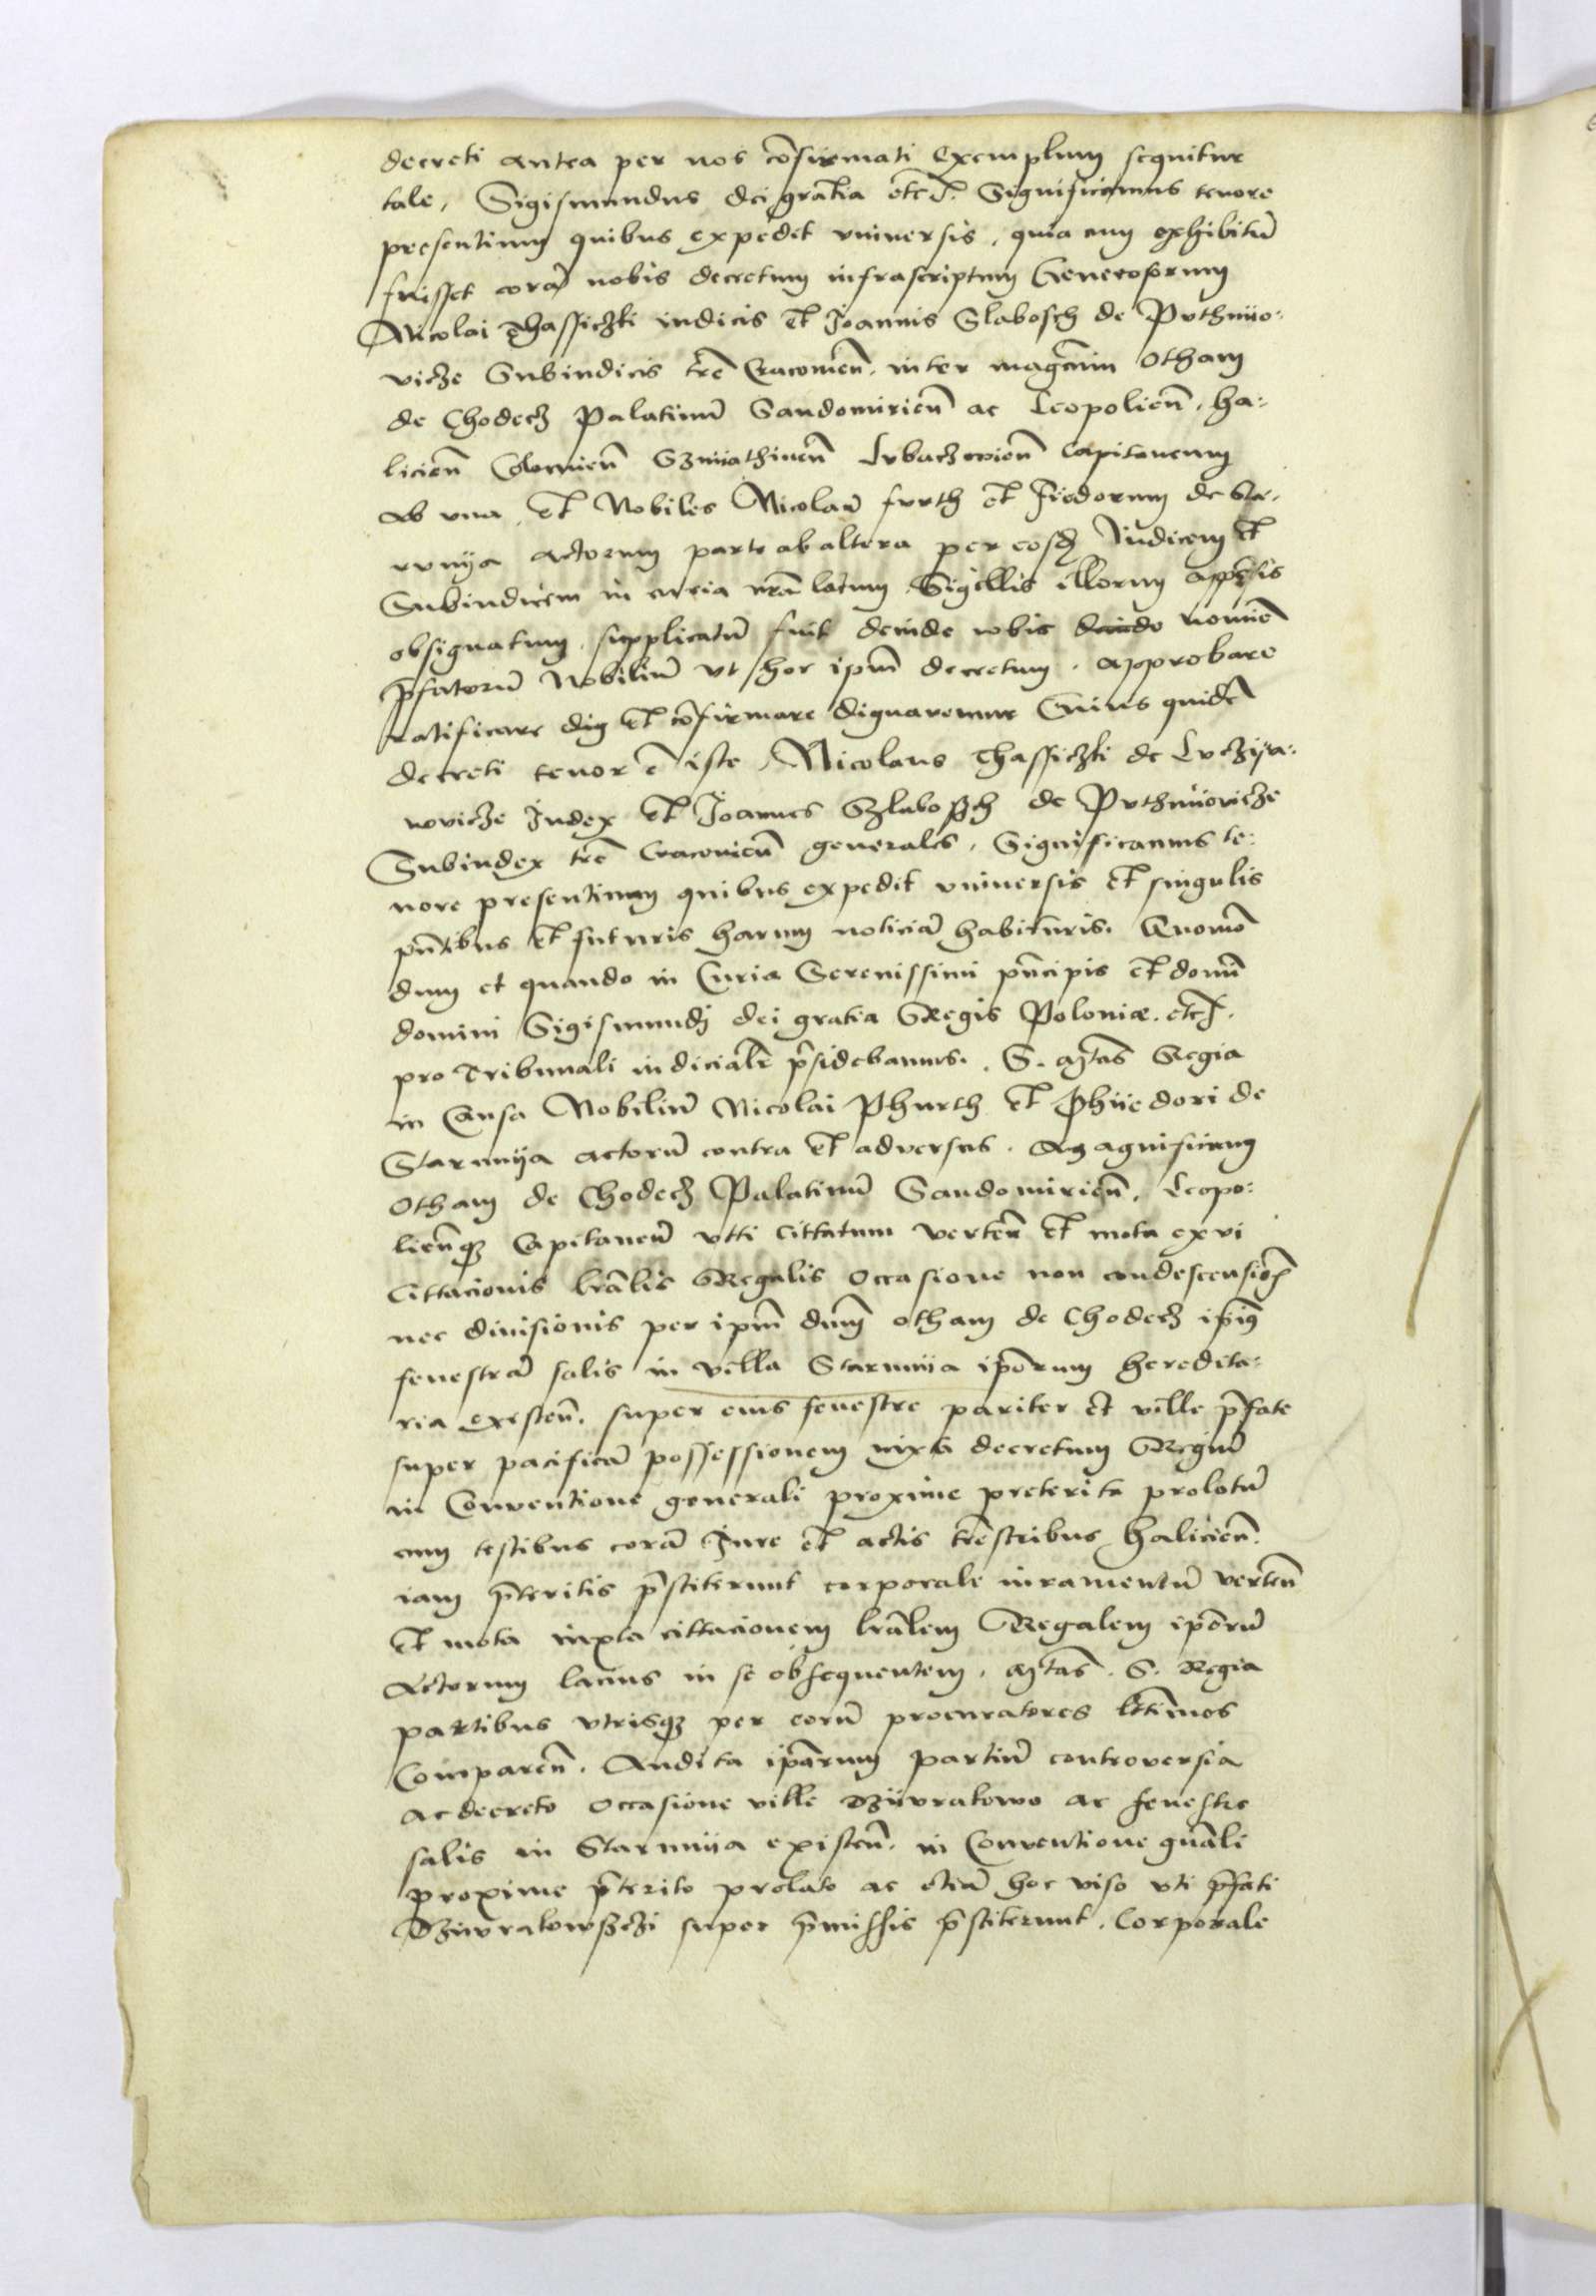 decreti antea per nos cōfirmati Exemplum sequitur
tale, Sigismundus dei grātia etc̄. Significamus tenore
presentium quibus expedit vniuersis, quia cum exhibitū
fuisset corā nobis decretum infrascriptum Generosorum
Nicolai Thassiczki iudicis et Joannis Slabosch de Puthnio:
vicze Subiudicis trē Cracouieñ. inter magcūm Otham
de Chodecz Palatinū Sandomirieñ ac Leopolieñ, ha:
licieñ Colomieñ Szniathineñ Lubaczowieñ Capitaneum
ab vna, et Nobiles Nicolaū furth et Fiedorum de Sta,
runya actorum parte ab altera per eosd Iudicem et
Subiudicem in curia nrā latum Sigillis illorum appēsis
obsignatum, supplicatū fuit deinde nobis deinde nomīe
p̄fatorū Nobiliū vt hoc ipm̄ decretum, approbare
ratificare dig et cōfirmare dignaremur Cuius quidē
decreti tenor ē iste, Nicolaus Thassiczki de Luczya:
novicze Iudex et Joannes Szlabosch de Puthniovicze
Subiudex trē Cracouieñ generales, Significamus te:
nore presentium quibus expedit vniuersis et singulis
pn̄tibus et futuris harum noticiā habituris. Quomō
dum et quando in Curia Serenissimi pn̄cipis et domī
domini Sigismundi dei gratia Regis Poloniæ. etc̄.
pro Tribunali iudicialē p̄sidebamus. S. M̄tas Regia
in Causa Nobiliū Nicolai Phurth et Phiiedori de
Starunija actorū contra et aduersus. Magnificum
Otham de Chodecz Palatinū Sandomirieñ, Leopo:
lieñq₃ Capitaneū vti cittatum verteñ et mota ex vi
Cittacionis lrālis Regalis Occasione non condescensiōis
nec diuisionis per ipm̄ dnm̄ otham de Chodecz ip̄ius
fenestrā salis in villa Starunia ipōrum heredita:
ria existeñ. super eius fenestre pariter et ville p̄fate
super pacificā possessionem iuxta decretum Regiū
in Conventione generali proxime preterita prolatū
cum testibus corā Iure et actis trēstribus Halicieñ.
iam p̄teritis p̄stiterunt corporale iuramentū verteñ
et mota iuxta cittacionem lrālem Regalem ipōrū
Actorum lacius in se obsequentem. M̄tas. S. Regia
partibus vtrisq₃ per eorū procuratores ltīmos
Compareñ. Audita ipārum partiū controversia
ac decreto Occasione ville Dziuratowo ac fenestre
salis in Starunia existeñ. in Conventione gnāli
proxime p̄terito prolato ac etiā hoc viso vti p̄fati
Dziuratowsczi super p̄missis p̄stiterunt. Corporale